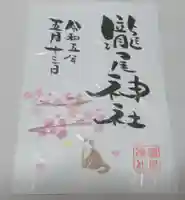 瀧尾神社
令和五年
五月十三日